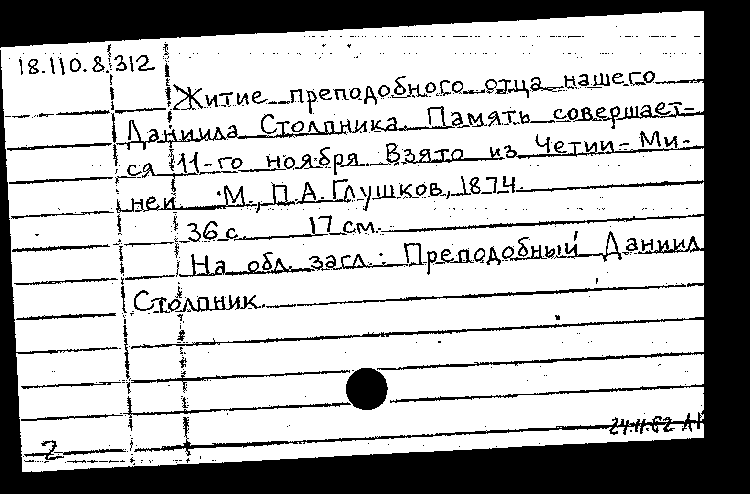 18.110.8.312
Житие преподобного отца нашего
Даниила Столпника. Память совершает-
ся 11-го ноября. Взято из Четии-Ми-
неи. М., П.А. Глушков, 1874.
36 с. 17 см.
На обл. загл.: Преподобный Даниил
Столпник.
2